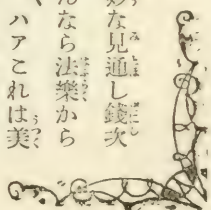 妙な見通し錢次
んなら法樂から
ハアこれは美